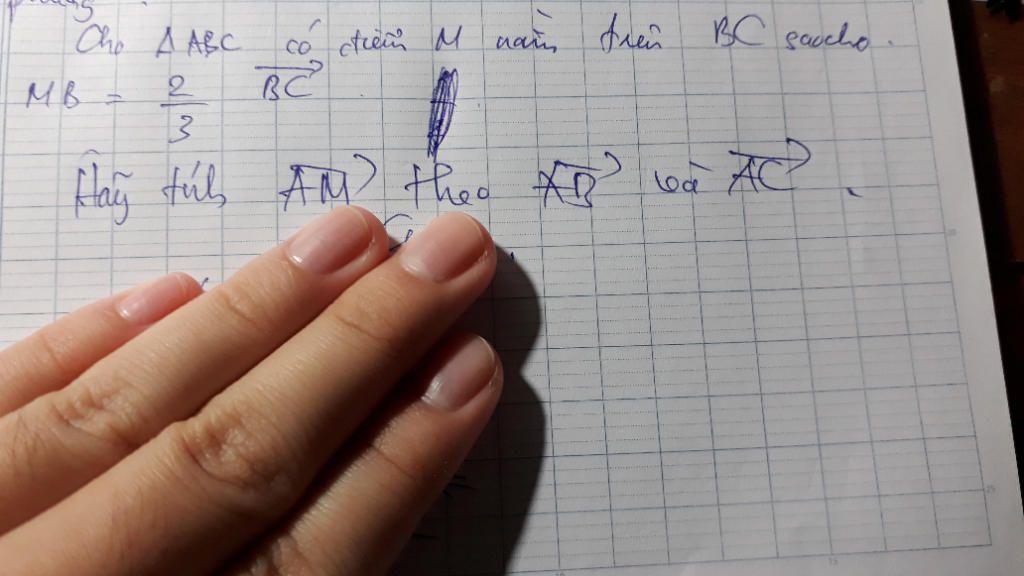 Cho ΔABC có điểm M nằm trên BC saocho.
MB = 2/3 \overrightarrow{BC}
Hãy tính \overrightarrow{AM} theo \overrightarrow{AB} và \overrightarrow{AC}.